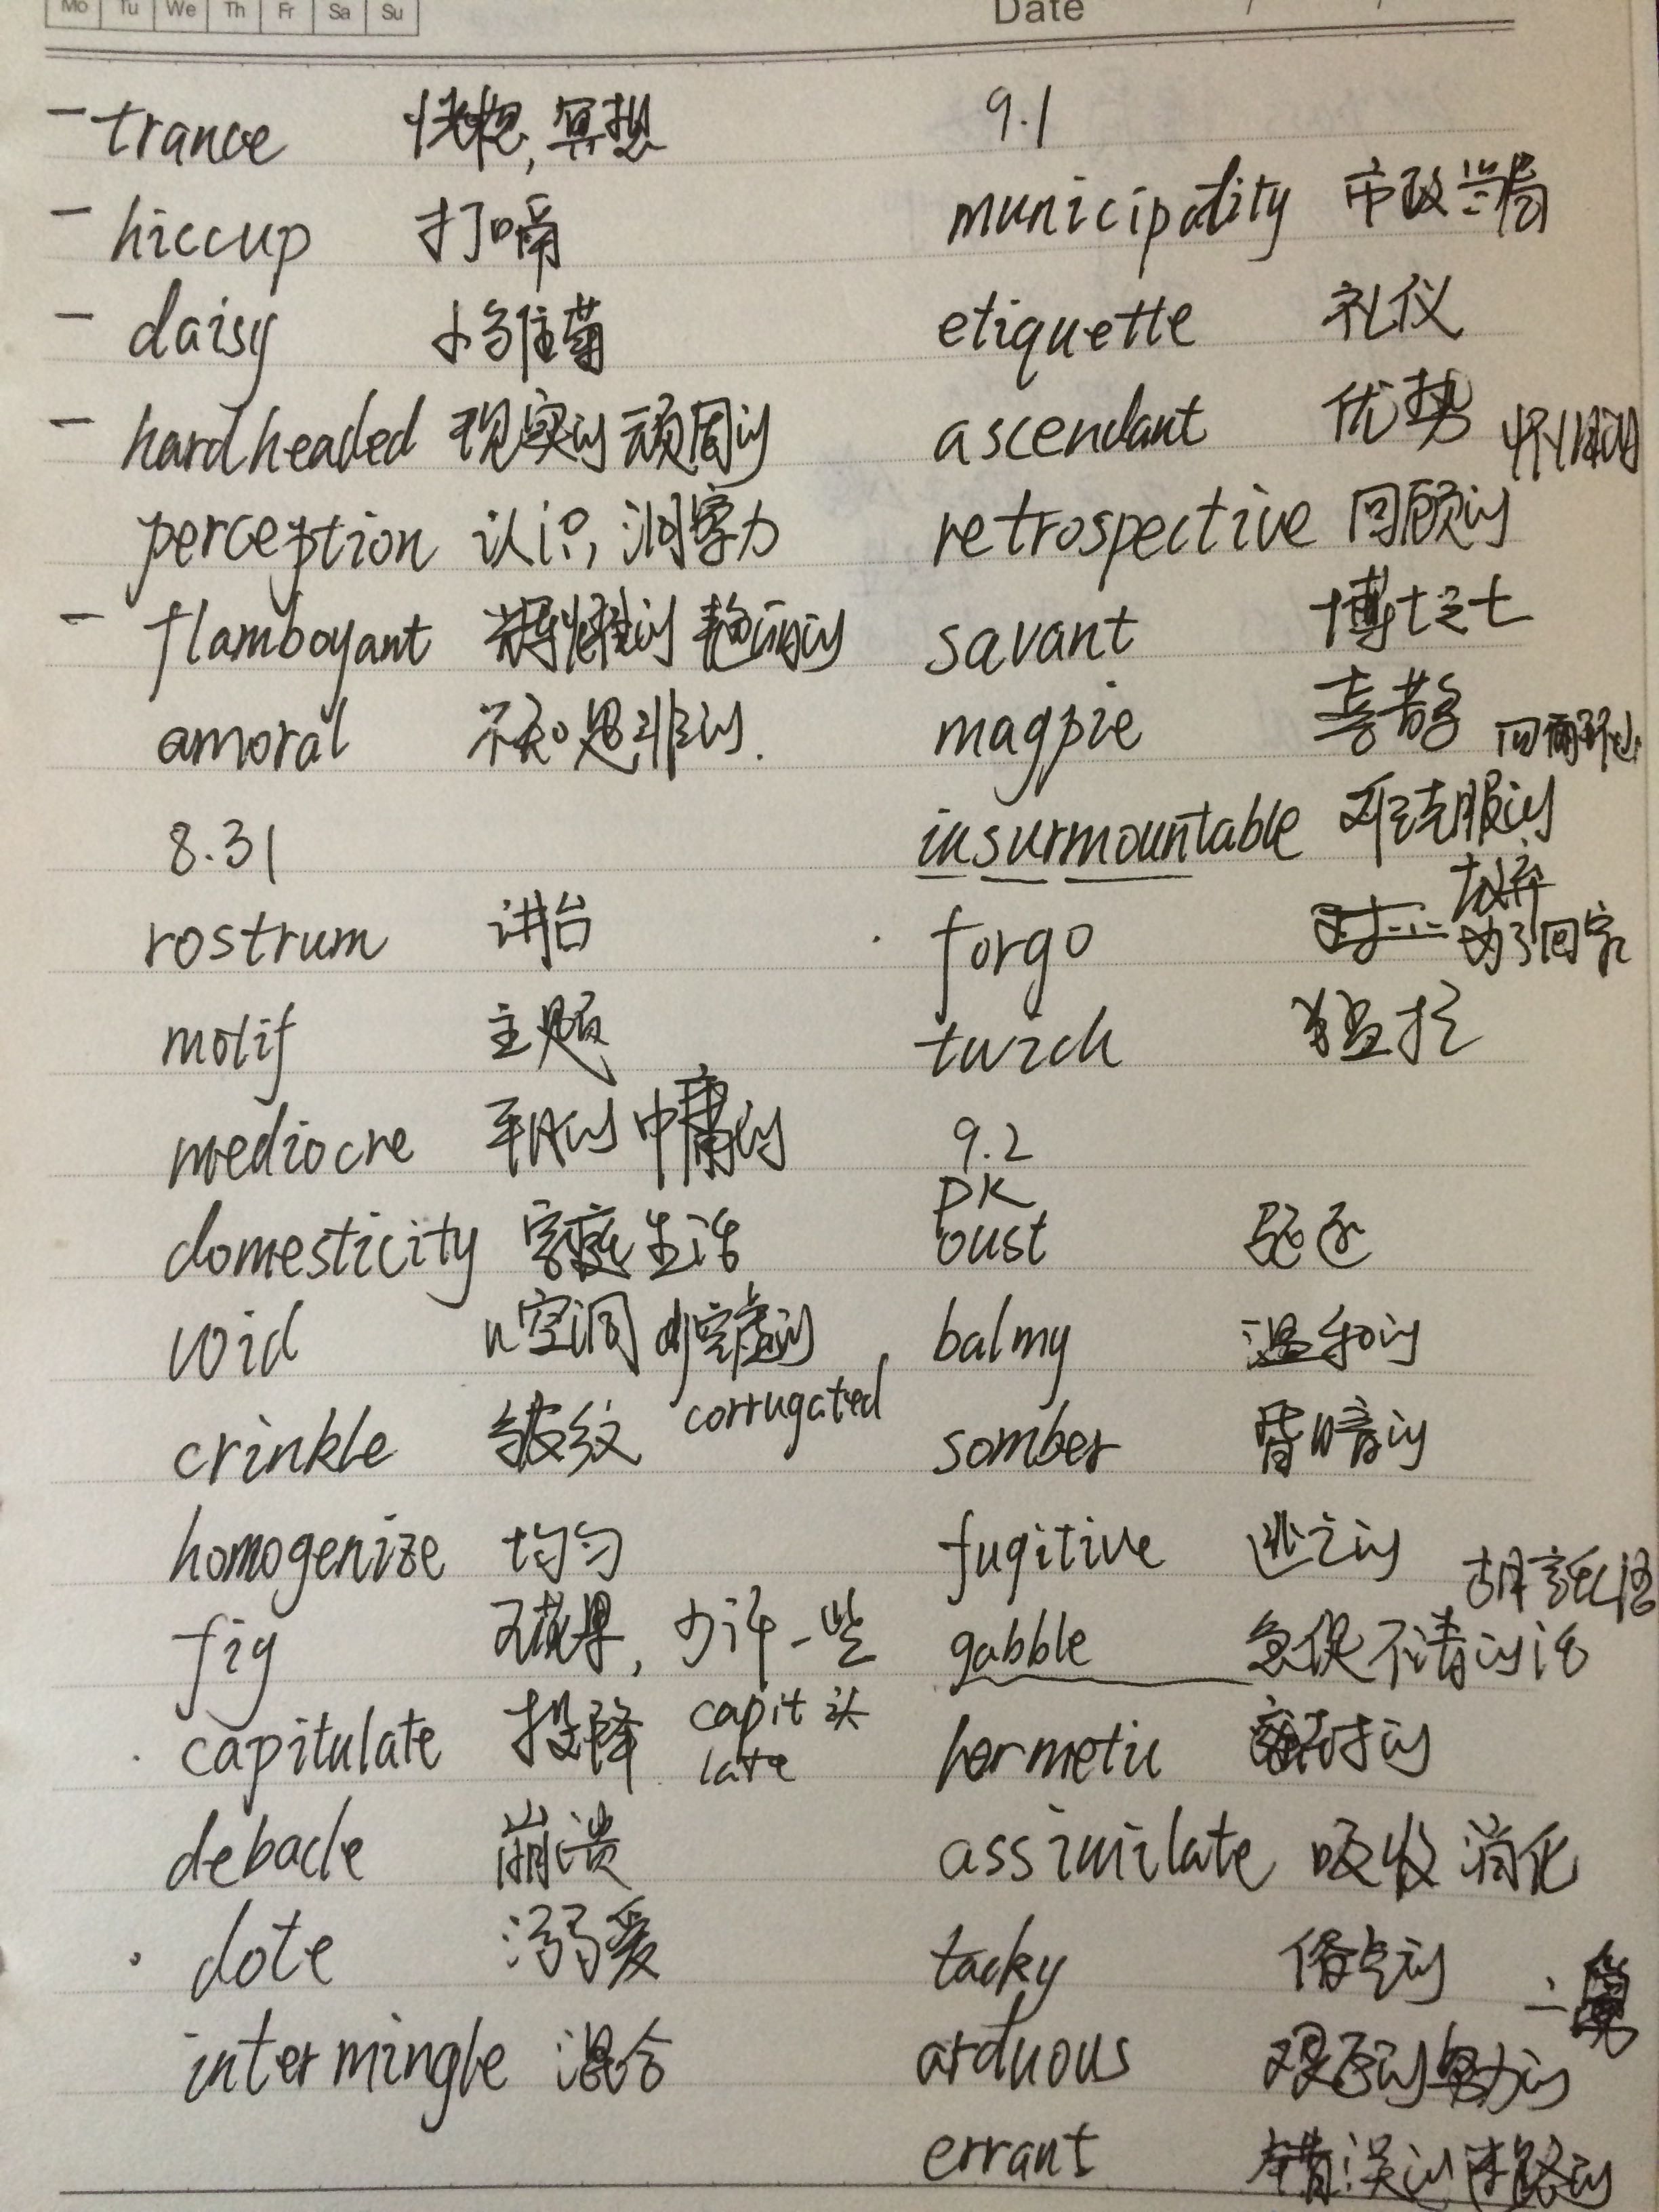 Mo Tu We Th Fr Sa Su
Date / /
- trance 恍惚, 冥想
- hiccup 打嗝
- daisy 小雏菊
- hardheaded 现实的 顽固的
perception 认识, 洞察力
- flamboyant 辉煌的 艳丽的
amoral 不知是非的.
8.31
rostrum 讲台
motif 主题
mediocre 平凡的 中庸的
domesticity 家庭生活
void n空洞 adj空虚的
crinkle 皱纹 corrugated
homogenize 均匀
fig 无花果, 少许一些
capitulate 投降 capit 头
late
debacle 崩溃
dote 溺爱
intermingle 混合
9.1
municipality 市政当局
etiquette 礼仪
ascendant 优势
retrospective 回顾的
savant 博士之士
magpie 喜鹊
insurmountable 难克服的
forgo 放弃
为了回家
twich 猛拉
9.2
PK
oust 驱逐
balmy 温和的
somber 昏暗的
fugitive 逃亡的
gabble 急促不清的话
hermetic 密封的
assimilate 吸收 消化
tacky 俗气的
arduous 艰辛的 努力的
errant 错误的 迷路的